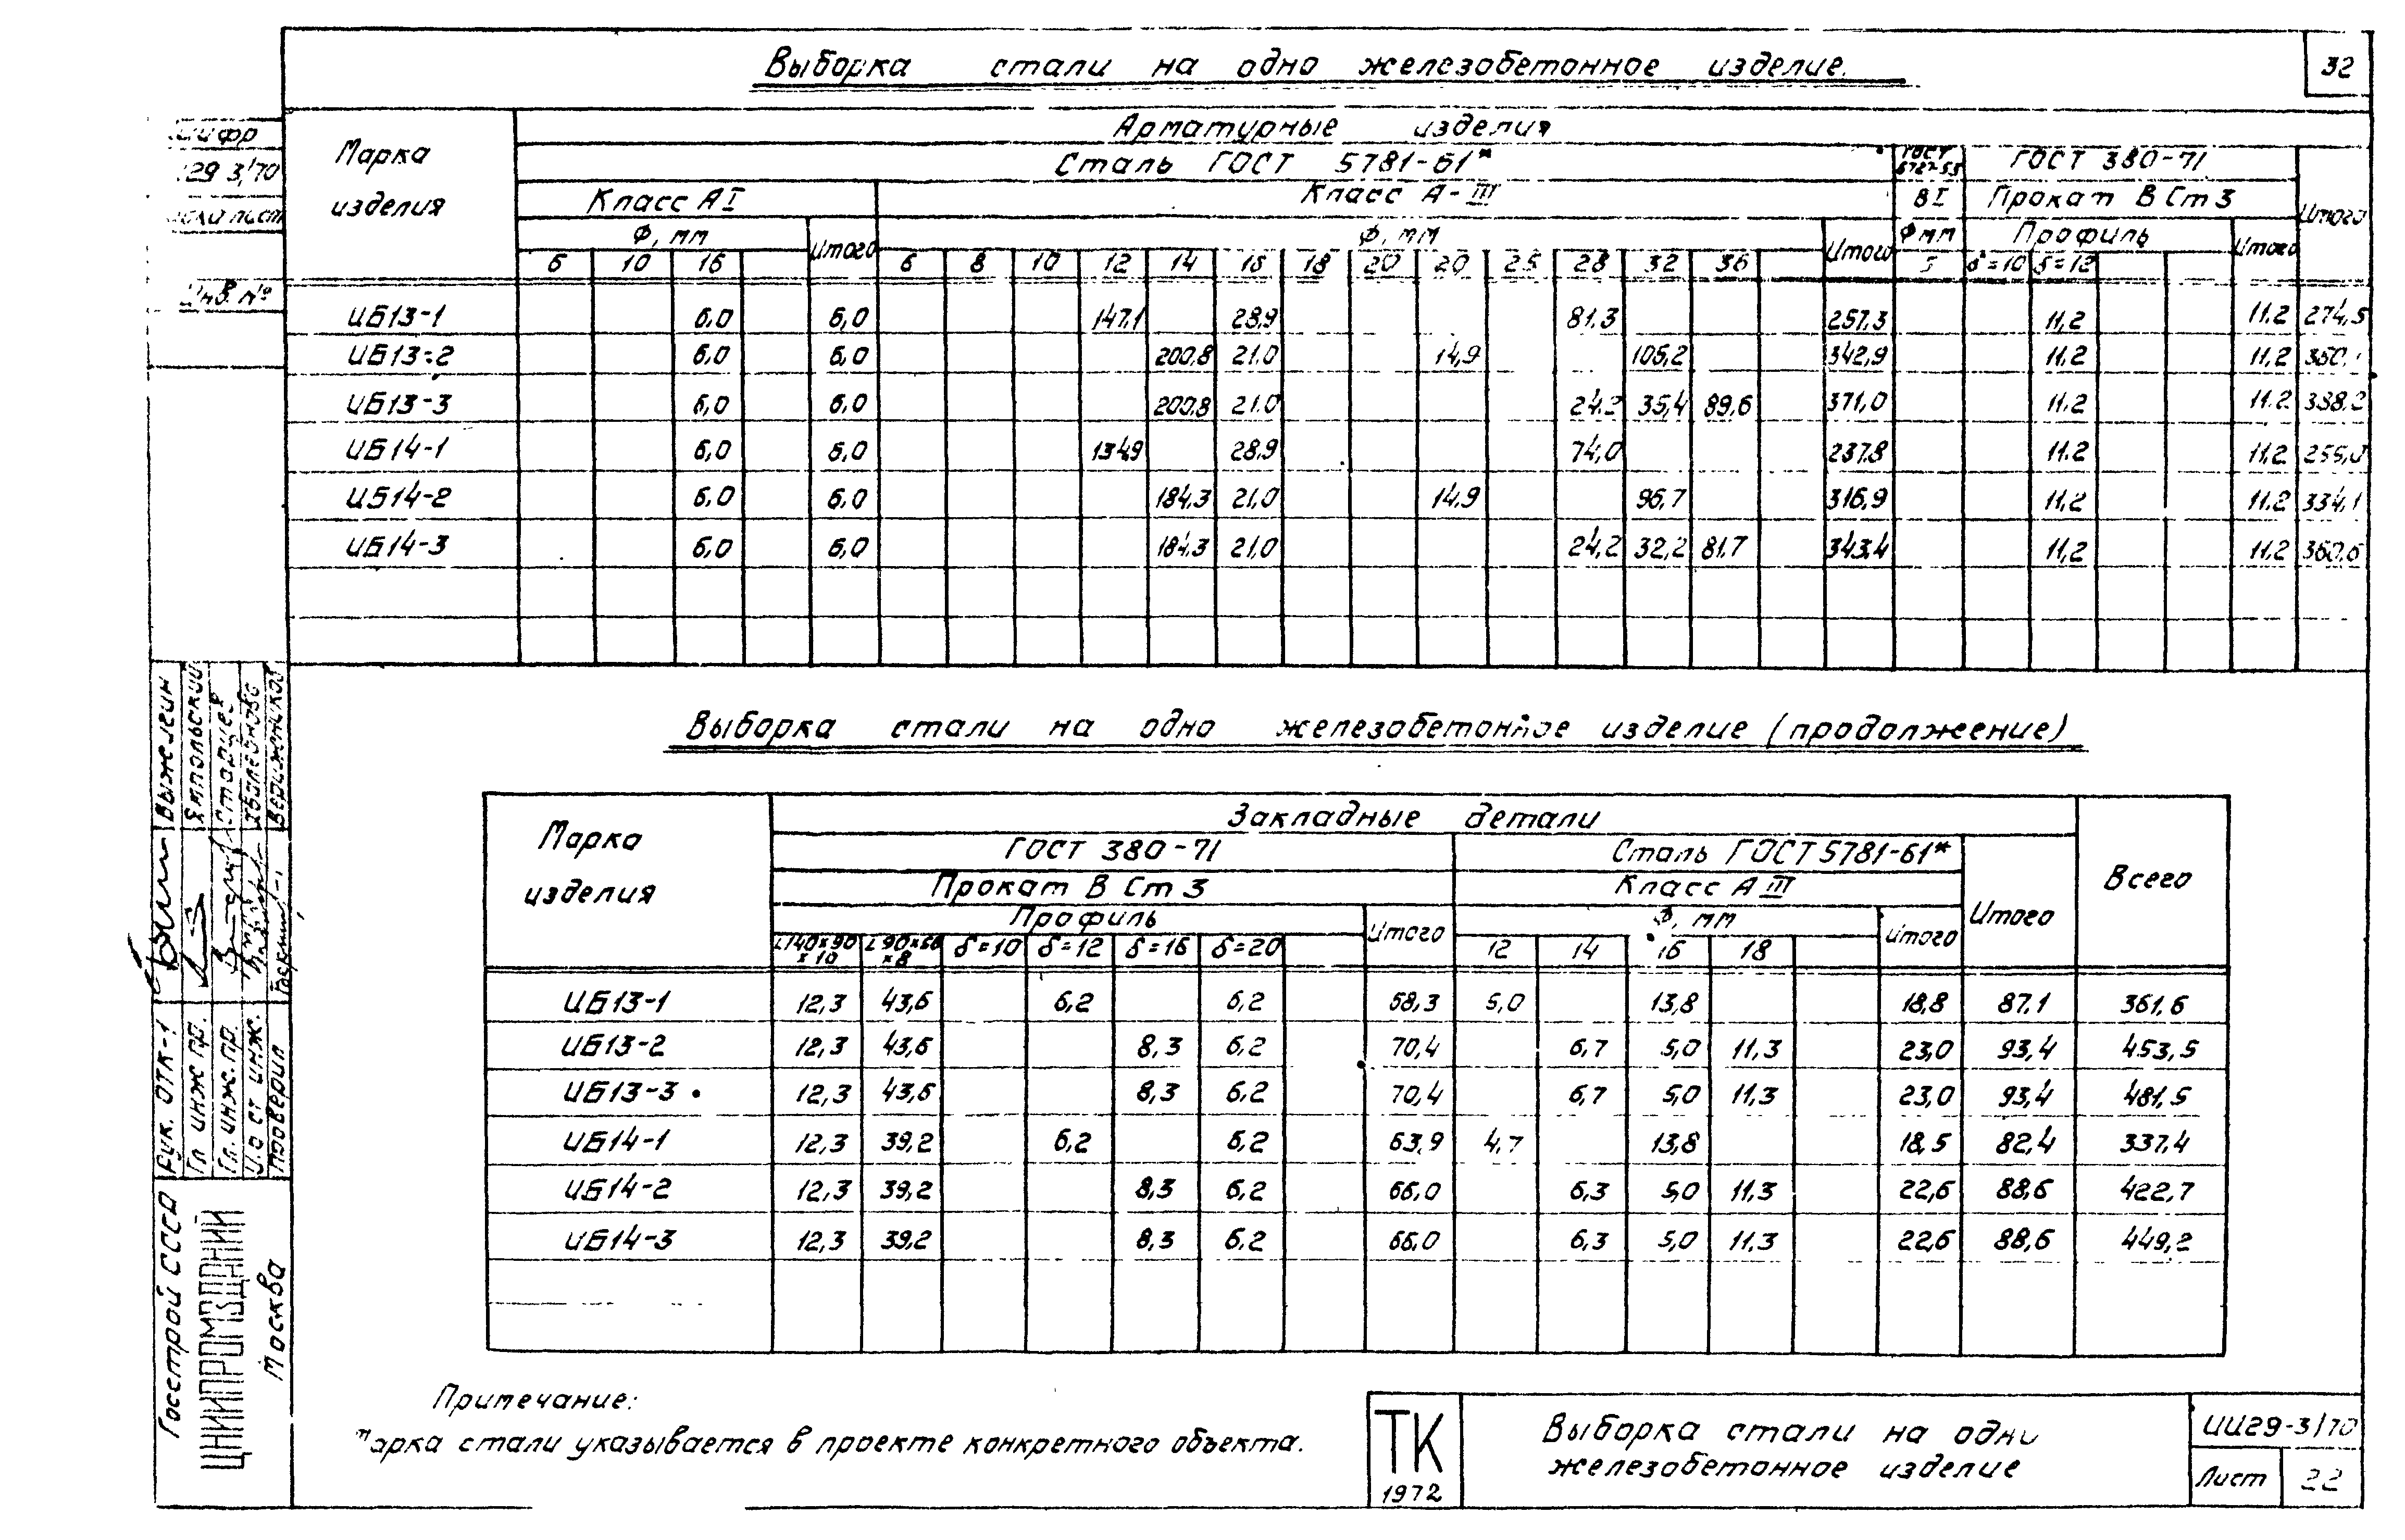 Выборка стали на одно железобетонное изделие.
32
Марка изделия
Арматурные изделия
Сталь ГОСТ 5781-61*
ГОСТ 380-71
Итого
Класс А I
Класс А-III
В I
Прокат В Ст 3
Ф, мм
Итого
Ф, мм
Итого
Ф мм
Профиль
Итого
6 10 16 6 8 10 12 14 16 18 20 20 25 28 32 36 5 δ=10 δ=12
ИБ13-1 6,0 6,0 147,1 28,9 81,3 257,3 11,2 11,2 274,5
ИБ13-2 6,0 6,0 200,8 21,0 14,9 106,2 342,9 11,2 11,2 360,1
ИБ13-3 6,0 6,0 200,8 21,0 24,2 35,4 89,6 371,0 11,2 11,2 388,2
ИБ14-1 6,0 6,0 134,9 28,9 74,0 237,8 11,2 11,2 255,0
ИБ14-2 6,0 6,0 184,3 21,0 14,9 96,7 316,9 11,2 11,2 334,1
ИБ14-3 6,0 6,0 184,3 21,0 24,2 32,2 81,7 343,4 11,2 11,2 360,6
Выборка стали на одно железобетонное изделие (продолжение)
Марка изделия
Закладные детали
Всего
ГОСТ 380-71
Сталь ГОСТ 5781-61*
Итого
Прокат В Ст 3
Класс А III
Профиль
Итого
Ф, мм
Итого
L140×90×10 L90×56×8 δ=10 δ=12 δ=16 δ=20 12 14 16 18
ИБ13-1 12,3 43,6 6,2 6,2 68,3 5,0 13,8 18,8 87,1 361,6
ИБ13-2 12,3 43,6 8,3 6,2 70,4 6,7 5,0 11,3 23,0 93,4 453,5
ИБ13-3 12,3 43,6 8,3 6,2 70,4 6,7 5,0 11,3 23,0 93,4 481,5
ИБ14-1 12,3 39,2 6,2 6,2 63,9 4,7 13,8 18,5 82,4 337,4
ИБ14-2 12,3 39,2 8,3 6,2 66,0 6,3 5,0 11,3 22,6 88,6 422,7
ИБ14-3 12,3 39,2 8,3 6,2 66,0 6,3 5,0 11,3 22,6 88,6 449,2
Примечание:
Марка стали указывается в проекте конкретного объекта.
ТК
1972
Выборка стали на одно
железобетонное изделие
ИИ29-3/70
Лист 22
Шифр
29 3/70
Инв. №
Рук. ОТК-1 Выжигин
Гл инж пр. Ямпольский
Гл. инж. пр.
И.о ст инж.
Проверил
Госстрой СССР
ЦНИИПРОМЗДАНИЙ
Москва